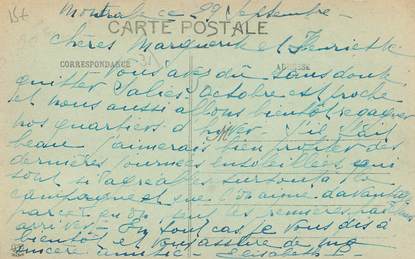 ce 29 Septembre -
CARTE POSTALE
Chères Marguerite et Henriette
CORRESPONDANCE ADRESSE
Vous avez dû sans doute
quitter Salies. Octobre est proche
et nous aussi allons bientôt regagner
nos quartiers d'hiver. S'il fait
beau j'aimerais bien profiter des
dernières journées ensoleillées, qui
sont si agréables surtout à la
campagne et que l'on aime davantage
parce qu'on sent les premières
arriver. En tout cas je vous dis à
bientôt et vous assure de ma
sincère amitié - Elisabeth